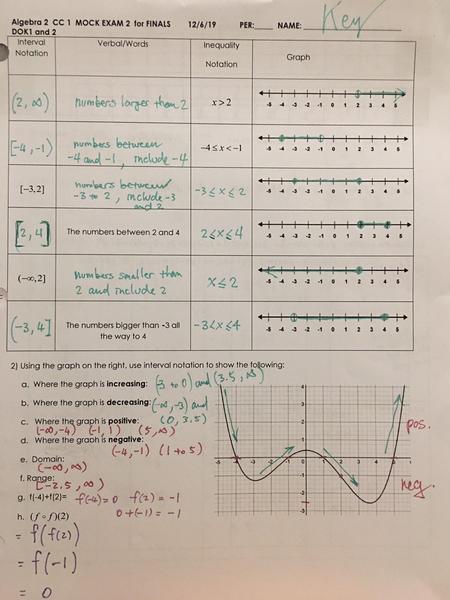 Algebra 2 CC 1 MOCK EXAM 2 for FINALS 12/6/19 PER:____ NAME: Key
DOK1 and 2
Interval Notation Verbal/Words Inequality Notation Graph
(2, ∞) numbers larger than 2 x > 2
-5 -4 -3 -2 -1 0 1 2 3 4 5
[-4, -1) numbers between -4 and -1, include -4 -4 ≤ x < -1
-5 -4 -3 -2 -1 0 1 2 3 4 5
[-3,2] numbers between -3 to 2, include -3 and 2 -3 ≤ x ≤ 2
-5 -4 -3 -2 -1 0 1 2 3 4 5
[2, 4] The numbers between 2 and 4 2 ≤ x ≤ 4
-5 -4 -3 -2 -1 0 1 2 3 4 5
(-∞,2] numbers smaller than 2 and include 2 x ≤ 2
-5 -4 -3 -2 -1 0 1 2 3 4 5
(-3, 4] The numbers bigger than -3 all the way to 4 -3 < x ≤ 4
-5 -4 -3 -2 -1 0 1 2 3 4 5
2) Using the graph on the right, use interval notation to show the following:
a. Where the graph is increasing: (-3 to 0) and (3.5, ∞)
b. Where the graph is decreasing: (-∞, -3) and
(0, 3.5)
c. Where the graph is positive:
(-∞, -4) (-1, 1) (5, ∞)
d. Where the graph is negative:
(-4, -1) (1 to 5)
e. Domain:
(-∞, ∞)
f. Range:
[-2.5, ∞)
g. f(-4)+f(2)= f(-4) = 0 f(2) = -1
0 + (-1) = -1
h. (f ∘ f)(2)
= f(f(2))
= f(-1)
= 0
pos.
neg.